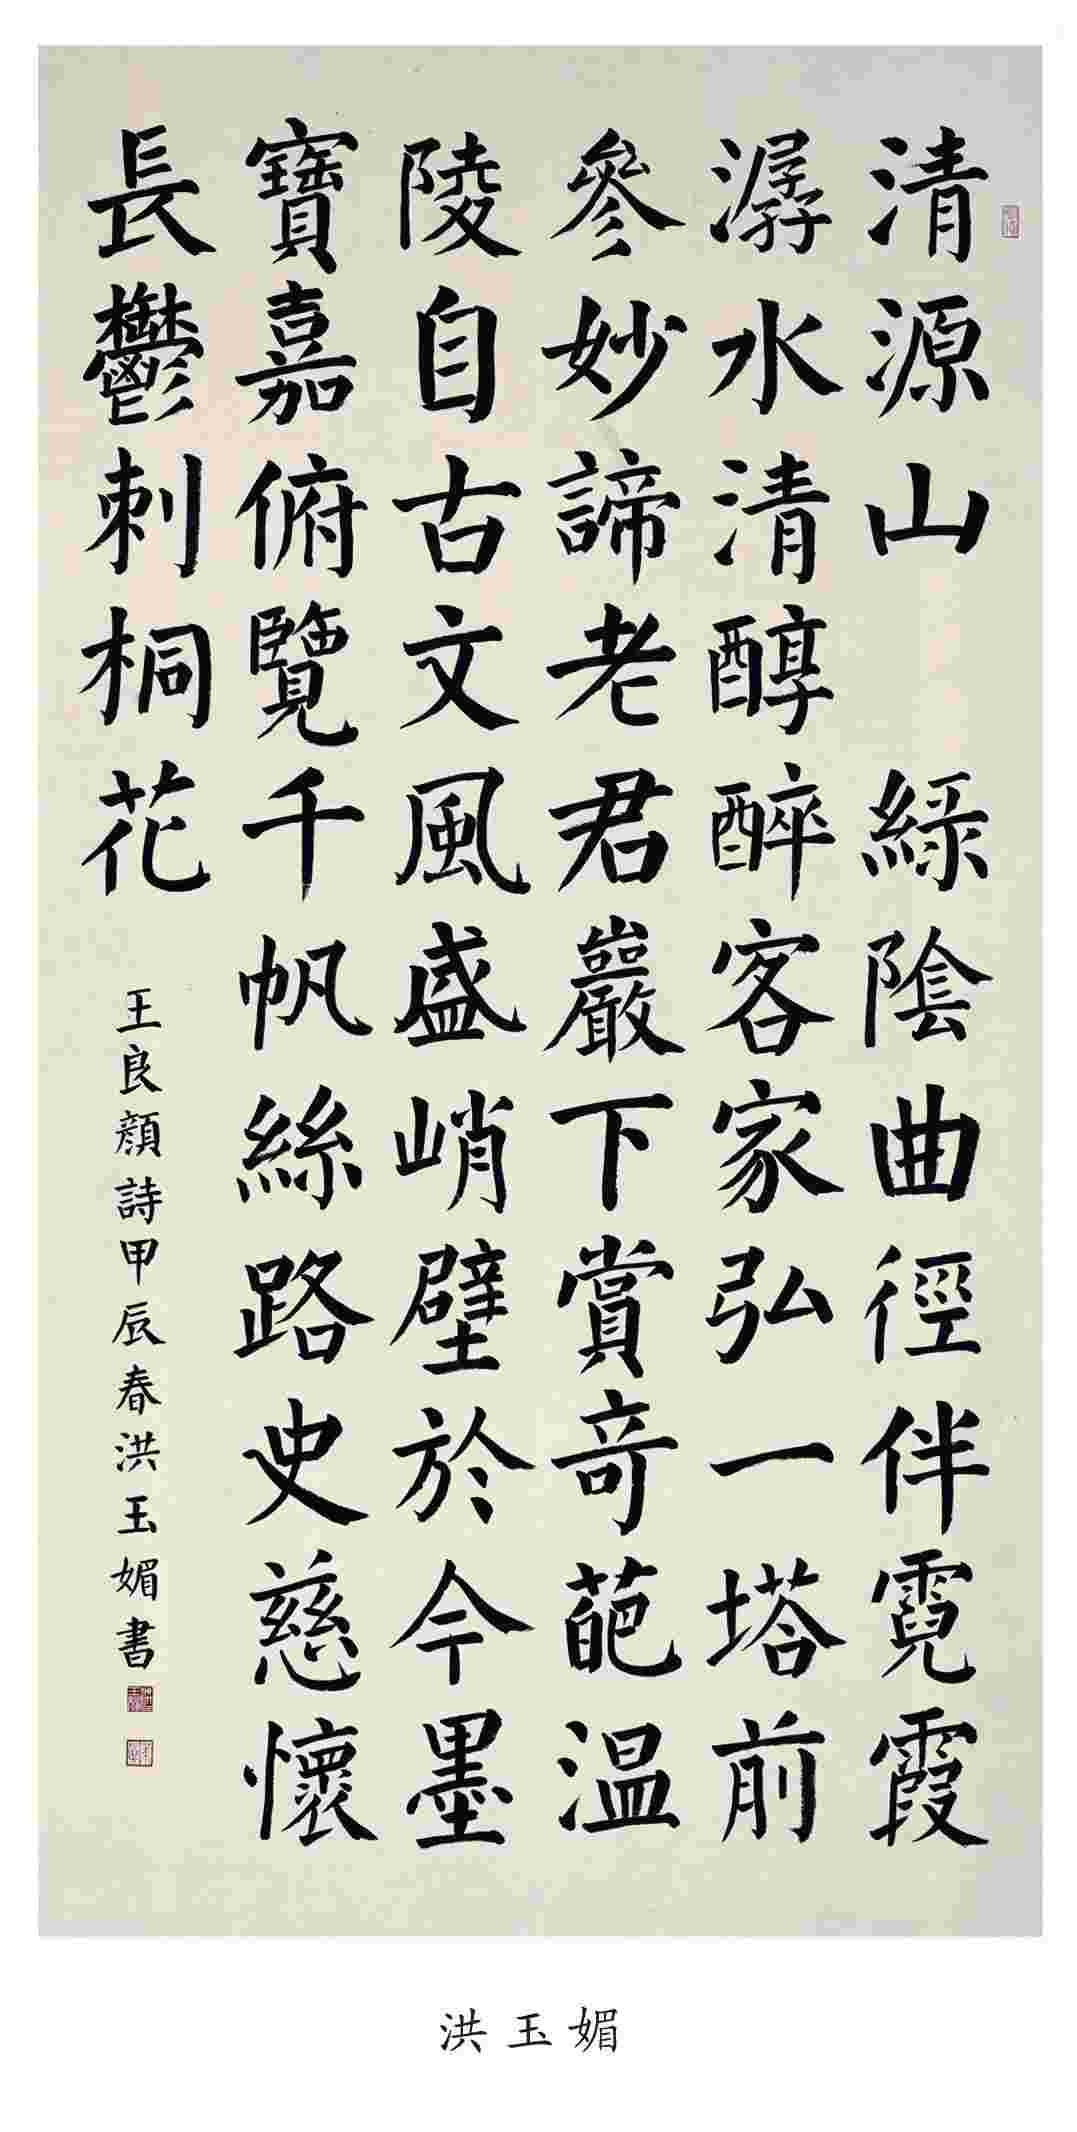 清源山 綠陰曲徑伴霓霞
潺水清醇醉客家弘一塔前
參妙諦老君巖下賞奇葩温
陵自古文風盛峭壁於今墨
寶嘉俯覽千帆絲路史慈懷
長鬱刺桐花
王良顏詩甲辰春洪玉媚書
洪玉媚